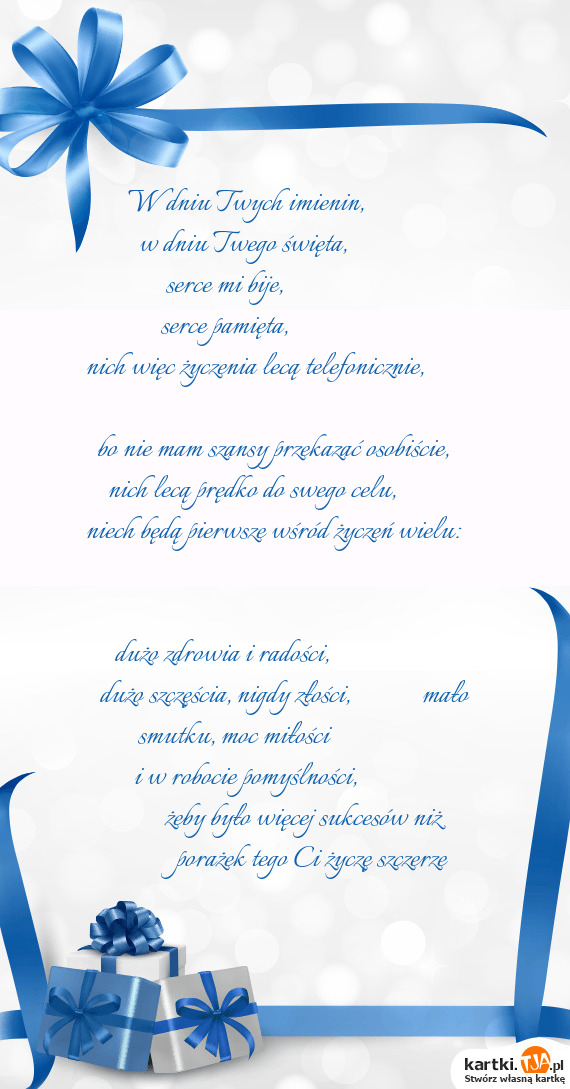 W dniu Twych imienin,
w dniu Twego święta,
serce mi bije,
serce pamięta,
nich więc życzenia lecą telefonicznie,
bo nie mam szansy przekazać osobiście,
nich lecą prędko do swego celu,
niech będą pierwsze wśród życzeń wielu:
dużo zdrowia i radości,
dużo szczęścia, nigdy złości, mało
smutku, moc miłości
i w robocie pomyślności,
żeby było więcej sukcesów niż
porażek tego Ci życzę szczerze
kartki.TJA.pl
Stwórz własną kartkę